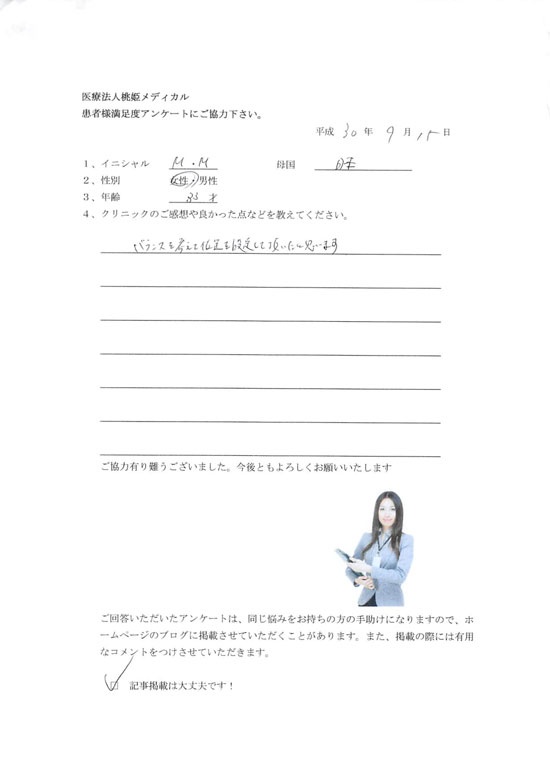 医療法人桃姫メディカル
患者様満足度アンケートにご協力下さい。
平成 30 年 9 月 15 日
1、イニシャル M・M 母国 日本
2、性別 女性・男性
3、年齢 33 才
4、クリニックのご感想や良かった点などを教えてください。
バランスを考えて位置を設定して頂いたと思います
ご協力有り難うございました。今後ともよろしくお願いいたします
ご回答いただいたアンケートは、同じ悩みをお持ちの方の手助けになりますので、ホ
ームページのブログに掲載させていただくことがあります。また、掲載の際には有用
なコメントをつけさせていただきます。
□ 記事掲載は大丈夫です！